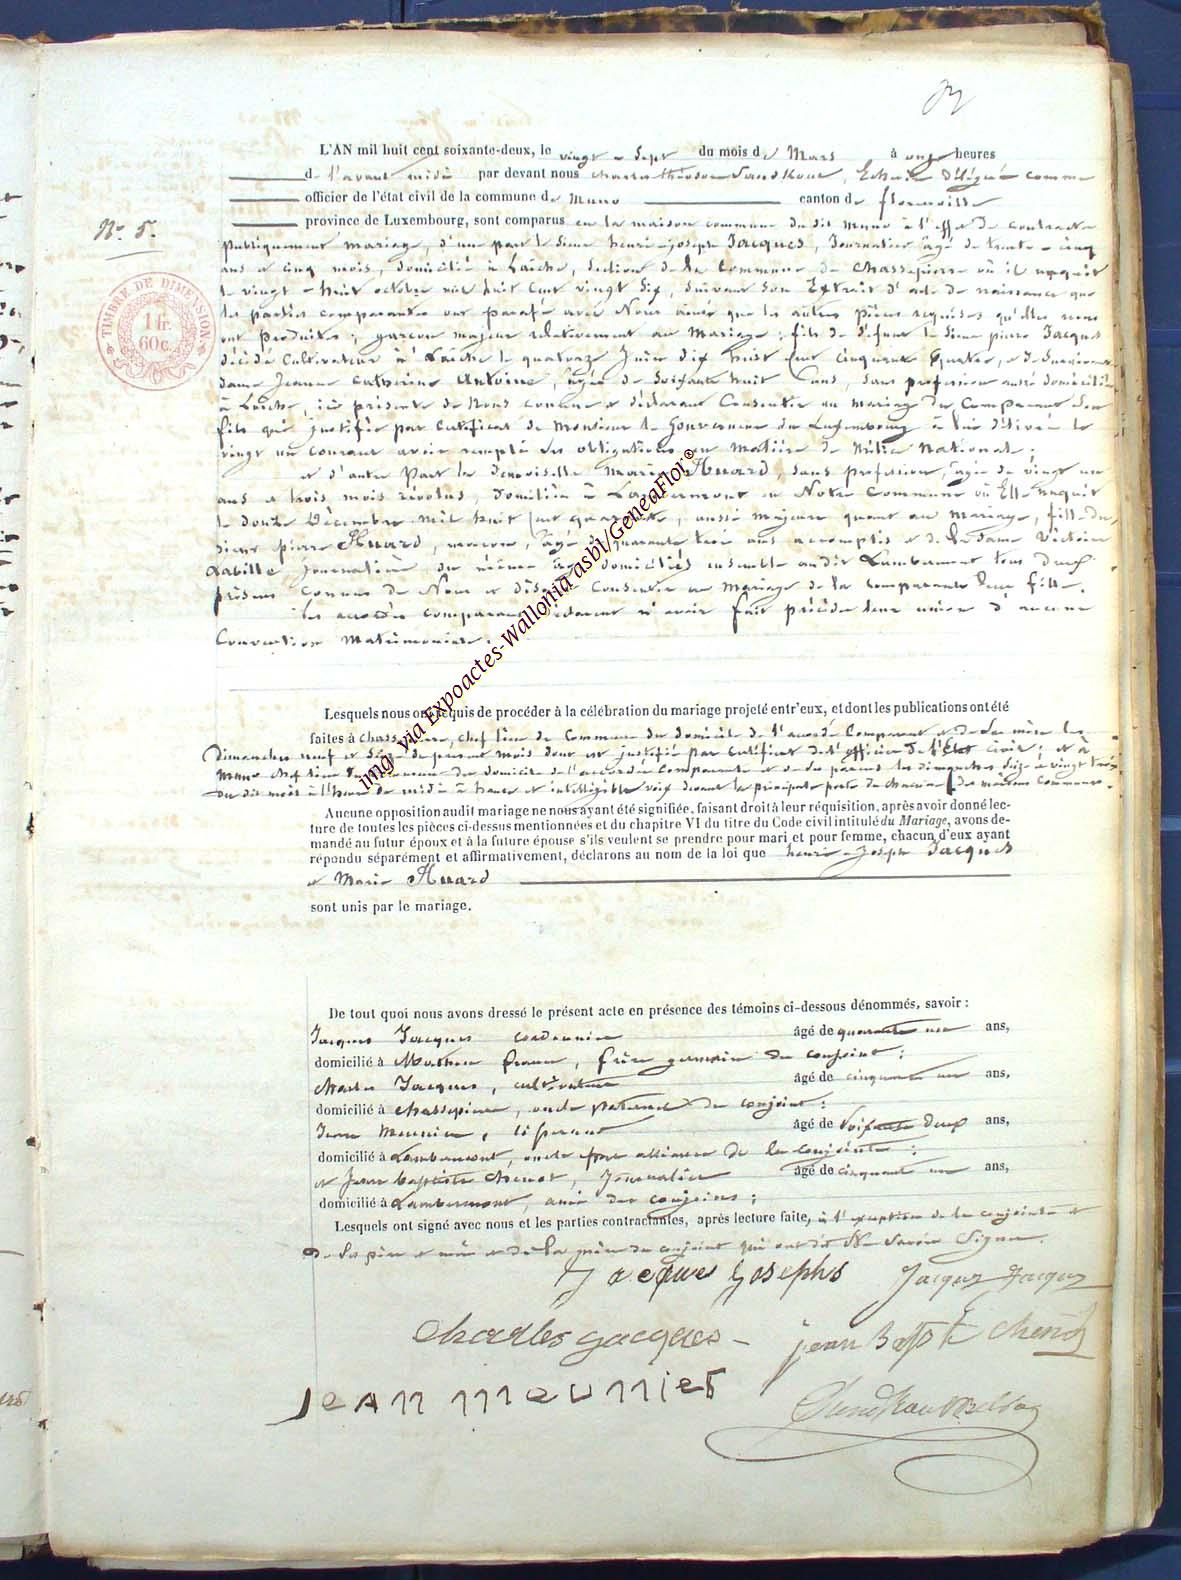 L'AN mil huit cent soixante-deux, le vingt-sept du mois de Mars à onze heures
de l'avant midi par devant nous charles théodore Sandkoul, Echevin délégué comme
officier de l'état civil de la commune de Muno canton de florenville
N° 5. province de Luxembourg, sont comparus en la maison commune du dit Muno à l'effet de contracter
TIMBRE DE DIMENSION
1 fr.
60 c.
publiquement mariage, d'une part le Sieur henri-joseph Jacques, Journalier âgé de trente-cinq
ans et cinq mois, domicilié à Laiche, Section de la Commune de Chassepierre où il naquit
le vingt-huit octobre mil huit cent vingt six, suivant son Extrait d'acte de naissance que
les parties comparantes ont parafé avec Nous ainsi que les autres pièces requises qu'elles nous
ont produites, garçon majeur relativement au Mariage; fils de défunt le Sieur pierre Jacques
décédé Cultivateur à Laiche le quatorze Juin dix huit cent cinquante quatre, et de Survivante
dame Jeanne Catherine Antoine, âgée de soixante huit ans, sans profession aussi domiciliée
à Laiche, ici présente de Nous connue et déclarant Consentir au mariage du Comparant son
fils qui justifie par Certificat de Monsieur le Gouverneur du Luxembourg à lui délivré le
vingt un courant avoir rempli ses obligations en Matière de Milice Nationale;
et d'autre Part la demoiselle Marie Huard, sans profession, âgée de vingt un
ans et trois mois révolus, domiciliée à Lambermont en Notre Commune où Elle naquit
le douze Décembre mil huit cent quarante, aussi majeure quant au mariage, fille du
sieur pierre Huard, maçon, âgé de quarante trois ans accomplis et de la dame Victoire
Labille Journalière, du même âge domiciliés ensemble audit Lambermont tous deux
présens Connus de Nous et disant Consentir au Mariage de la comparante leur fille.
les accordés comparans déclarent n'avoir fait précéder leur union d'aucune
Convention Matrimoniale.
Lesquels nous ont requis de procéder à la célébration du mariage projeté entr'eux, et dont les publications ont été
faites à chassepierre, chef lieu de Commune du domicile de l'accordé Comparant et de sa mère les
Dimanches neuf et seize du présent mois dont est justifié par Certificat de l'officier de l'État civil; et à
Muno Chef lieu de commune du domicile de l'accordée comparante et de ses parens les dimanches seize et vingt trois
du dit mois à l'heure de midi à haute et intelligible voix devant la principale porte de chacune des maisons Communes.
Aucune opposition audit mariage ne nous ayant été signifiée, faisant droit à leur réquisition, après avoir donné lec-
ture de toutes les pièces ci-dessus mentionnées et du chapitre VI du titre du Code civil intitulé du Mariage, avons de-
mandé au futur époux et à la future épouse s'ils veulent se prendre pour mari et pour femme, chacun d'eux ayant
répondu séparément et affirmativement, déclarons au nom de la loi que henri-Joseph Jacques
et Marie Huard
sont unis par le mariage.
De tout quoi nous avons dressé le présent acte en présence des témoins ci-dessous dénommés, savoir :
Jacques Jacques cordonnier âgé de quarante un ans,
domicilié à Mathon france, frère germain du conjoint;
charles Jacques, cultivateur âgé de cinquante un ans,
domicilié à chassepierre, oncle paternel du conjoint;
Jean Meunier, tisserand âgé de soixante deux ans,
domicilié à Lambermont, oncle par alliance de la conjointe;
et Jean baptiste Chenot, Journalier âgé de cinquante un ans,
domicilié à Lambermont, ami des conjoins;
Lesquels ont signé avec nous et les parties contractantes, après lecture faite, à l'exception de la conjointe et
de ses père et mère et de la mère du conjoint qui ont dit Ne Savoir Signer.
Jacques Josephs Jacques Jacques
Charles Jacques jean Bapte Chenot
Jean meunier
img via Expoactes-Wallonia asbl/GeneaFlor©